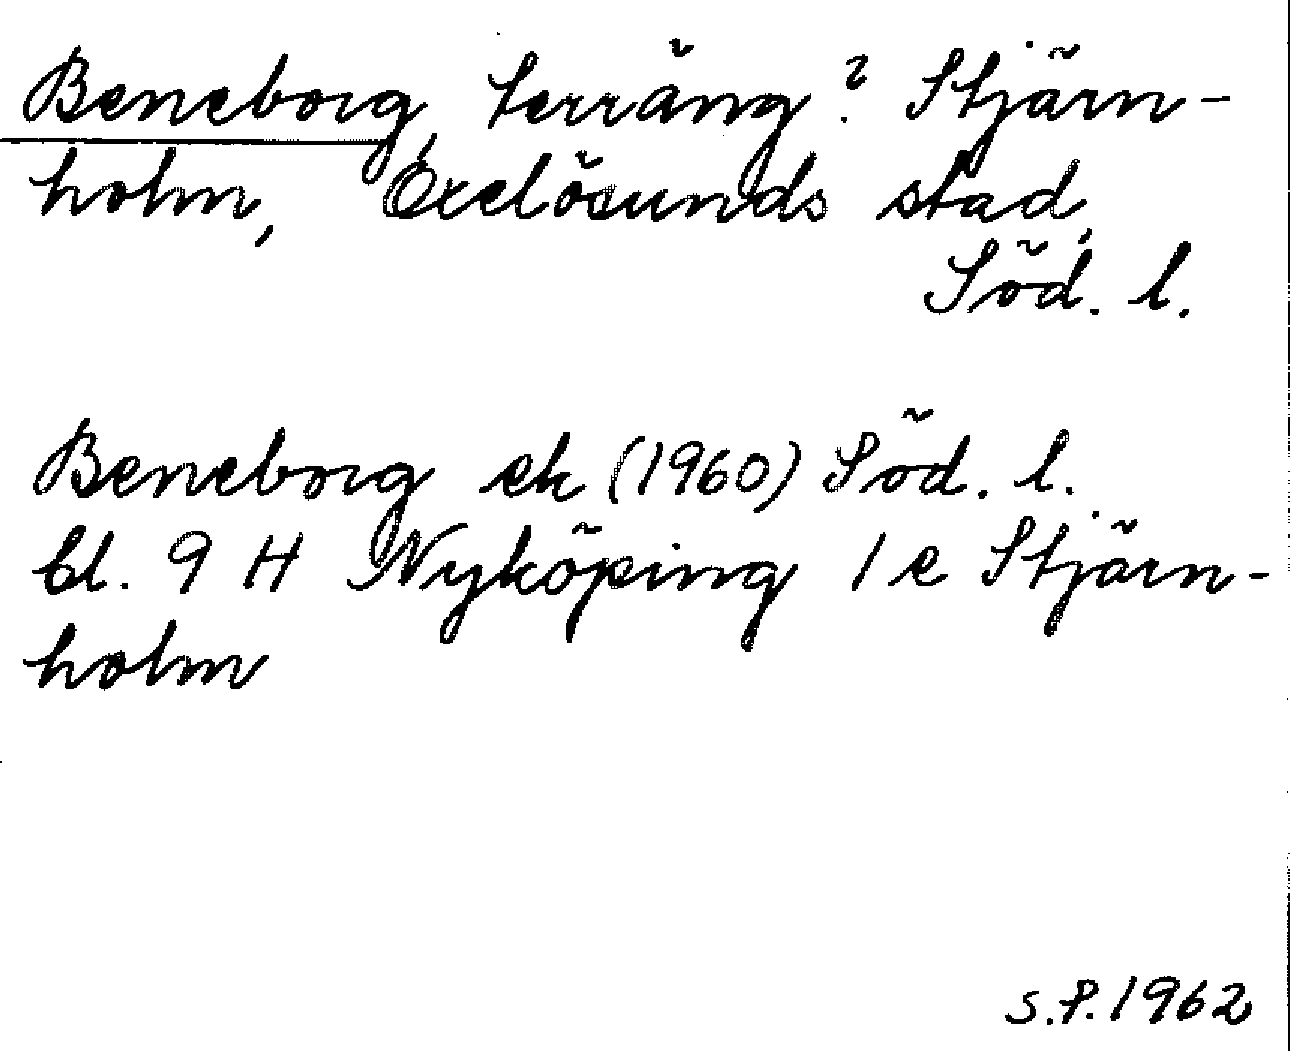 Beneborg, terräng? Stjärn-
holm, Oxelösunds stad,
Söd. l.
Beneborg ek (1960) Söd. l.
bl. 9 H Nyköping 1 e Stjärn-
holm
S.P. 1962